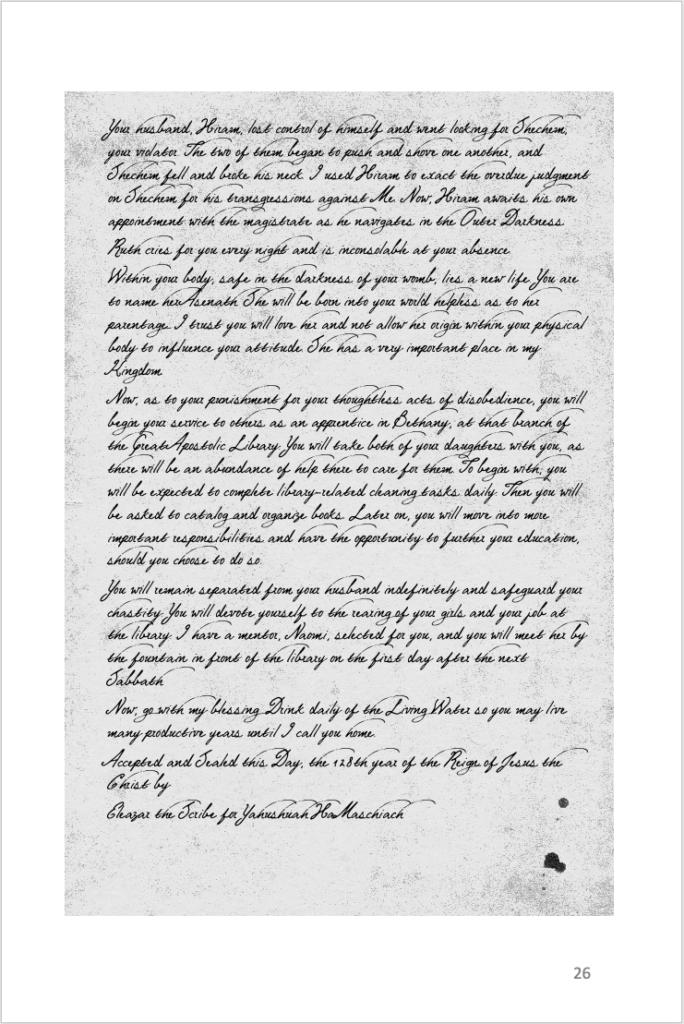 Your husband, Hiram, lost control of himself and went looking for Shechem,
your violator. The two of them began to push and shove one another, and
Shechem fell and broke his neck. I used Hiram to exact the overdue judgment
on Shechem for his transgressions against Me. Now, Hiram awaits his own
appointment with the magistrate as he navigates in the Outer Darkness.
Ruth cries for you every night and is inconsolable at your absence.
Within your body, safe in the darkness of your womb, lies a new life. You are
to name her Asenath. She will be born into your world helpless as to her
parentage. I trust you will love her and not allow her origin within your physical
body to influence your attitude. She has a very important place in my
Kingdom.
Now, as to your punishment for your thoughtless acts of disobedience, you will
begin your service to others as an apprentice in Bethany, at that branch of
the Great Apostolic Library. You will take both of your daughters with you, as
there will be an abundance of help there to care for them. To begin with, you
will be expected to complete library-related cleaning tasks daily. Then you will
be asked to catalog and organize books. Later on, you will move into more
important responsibilities and have the opportunity to further your education,
should you choose to do so.
You will remain separated from your husband indefinitely and safeguard your
chastity. You will devote yourself to the rearing of your girls and your job at
the library. I have a mentor, Naomi, selected for you, and you will meet her by
the fountain in front of the library on the first day after the next
Sabbath.
Now, go with my blessing. Drink daily of the Living Water so you may live
many productive years until I call you home.
Accepted and Sealed this Day, the 128th year of the Reign of Jesus the
Christ by
Eleazar the Scribe for Yahushuah HaMaschiach
26